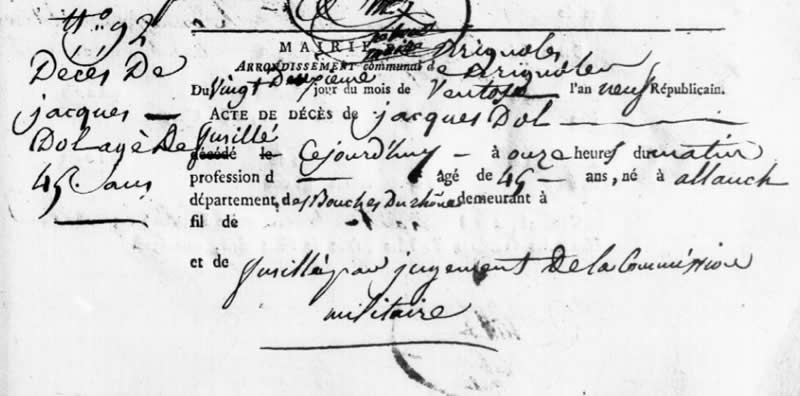 N.º 92
Decès De
jacques —
Dol agè De
45. ans
MAIRIE Brignoles
ARRONDISSEMENT communal de Brignoles
Du Vingt Deuxieme jour du mois de Ventose l'an neuf Républicain.
ACTE DE DÉCÈS de jacques Dol
fusillé
décédé le Cejourd'huy — à onze heures du matin
profession d — âgé de 45 — ans, né à allauch
département, des Bouches Du rhône demeurant à
fil de
et de
fusillé par jugement De la Commission
militaire